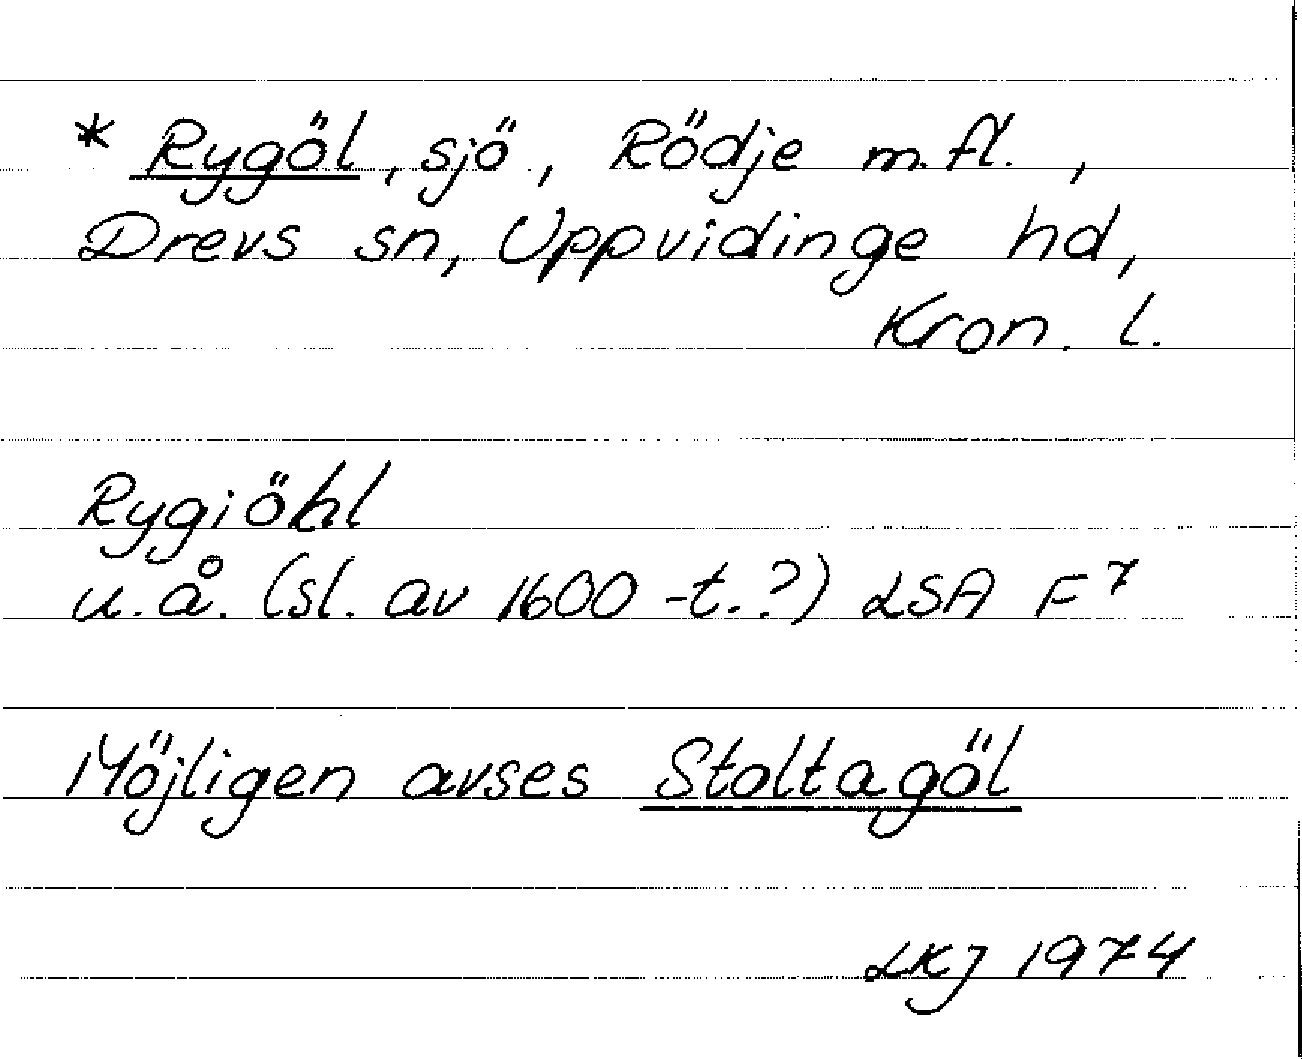 * Rygöl, sjö, Rödje m.fl.,
Drevs sn, Uppvidinge hd,
Kron. l.
Rygiöhl
u.å. (sl. av 1600-t.?) LSA F7
Möjligen avses Stoltagöl
LKJ 1974